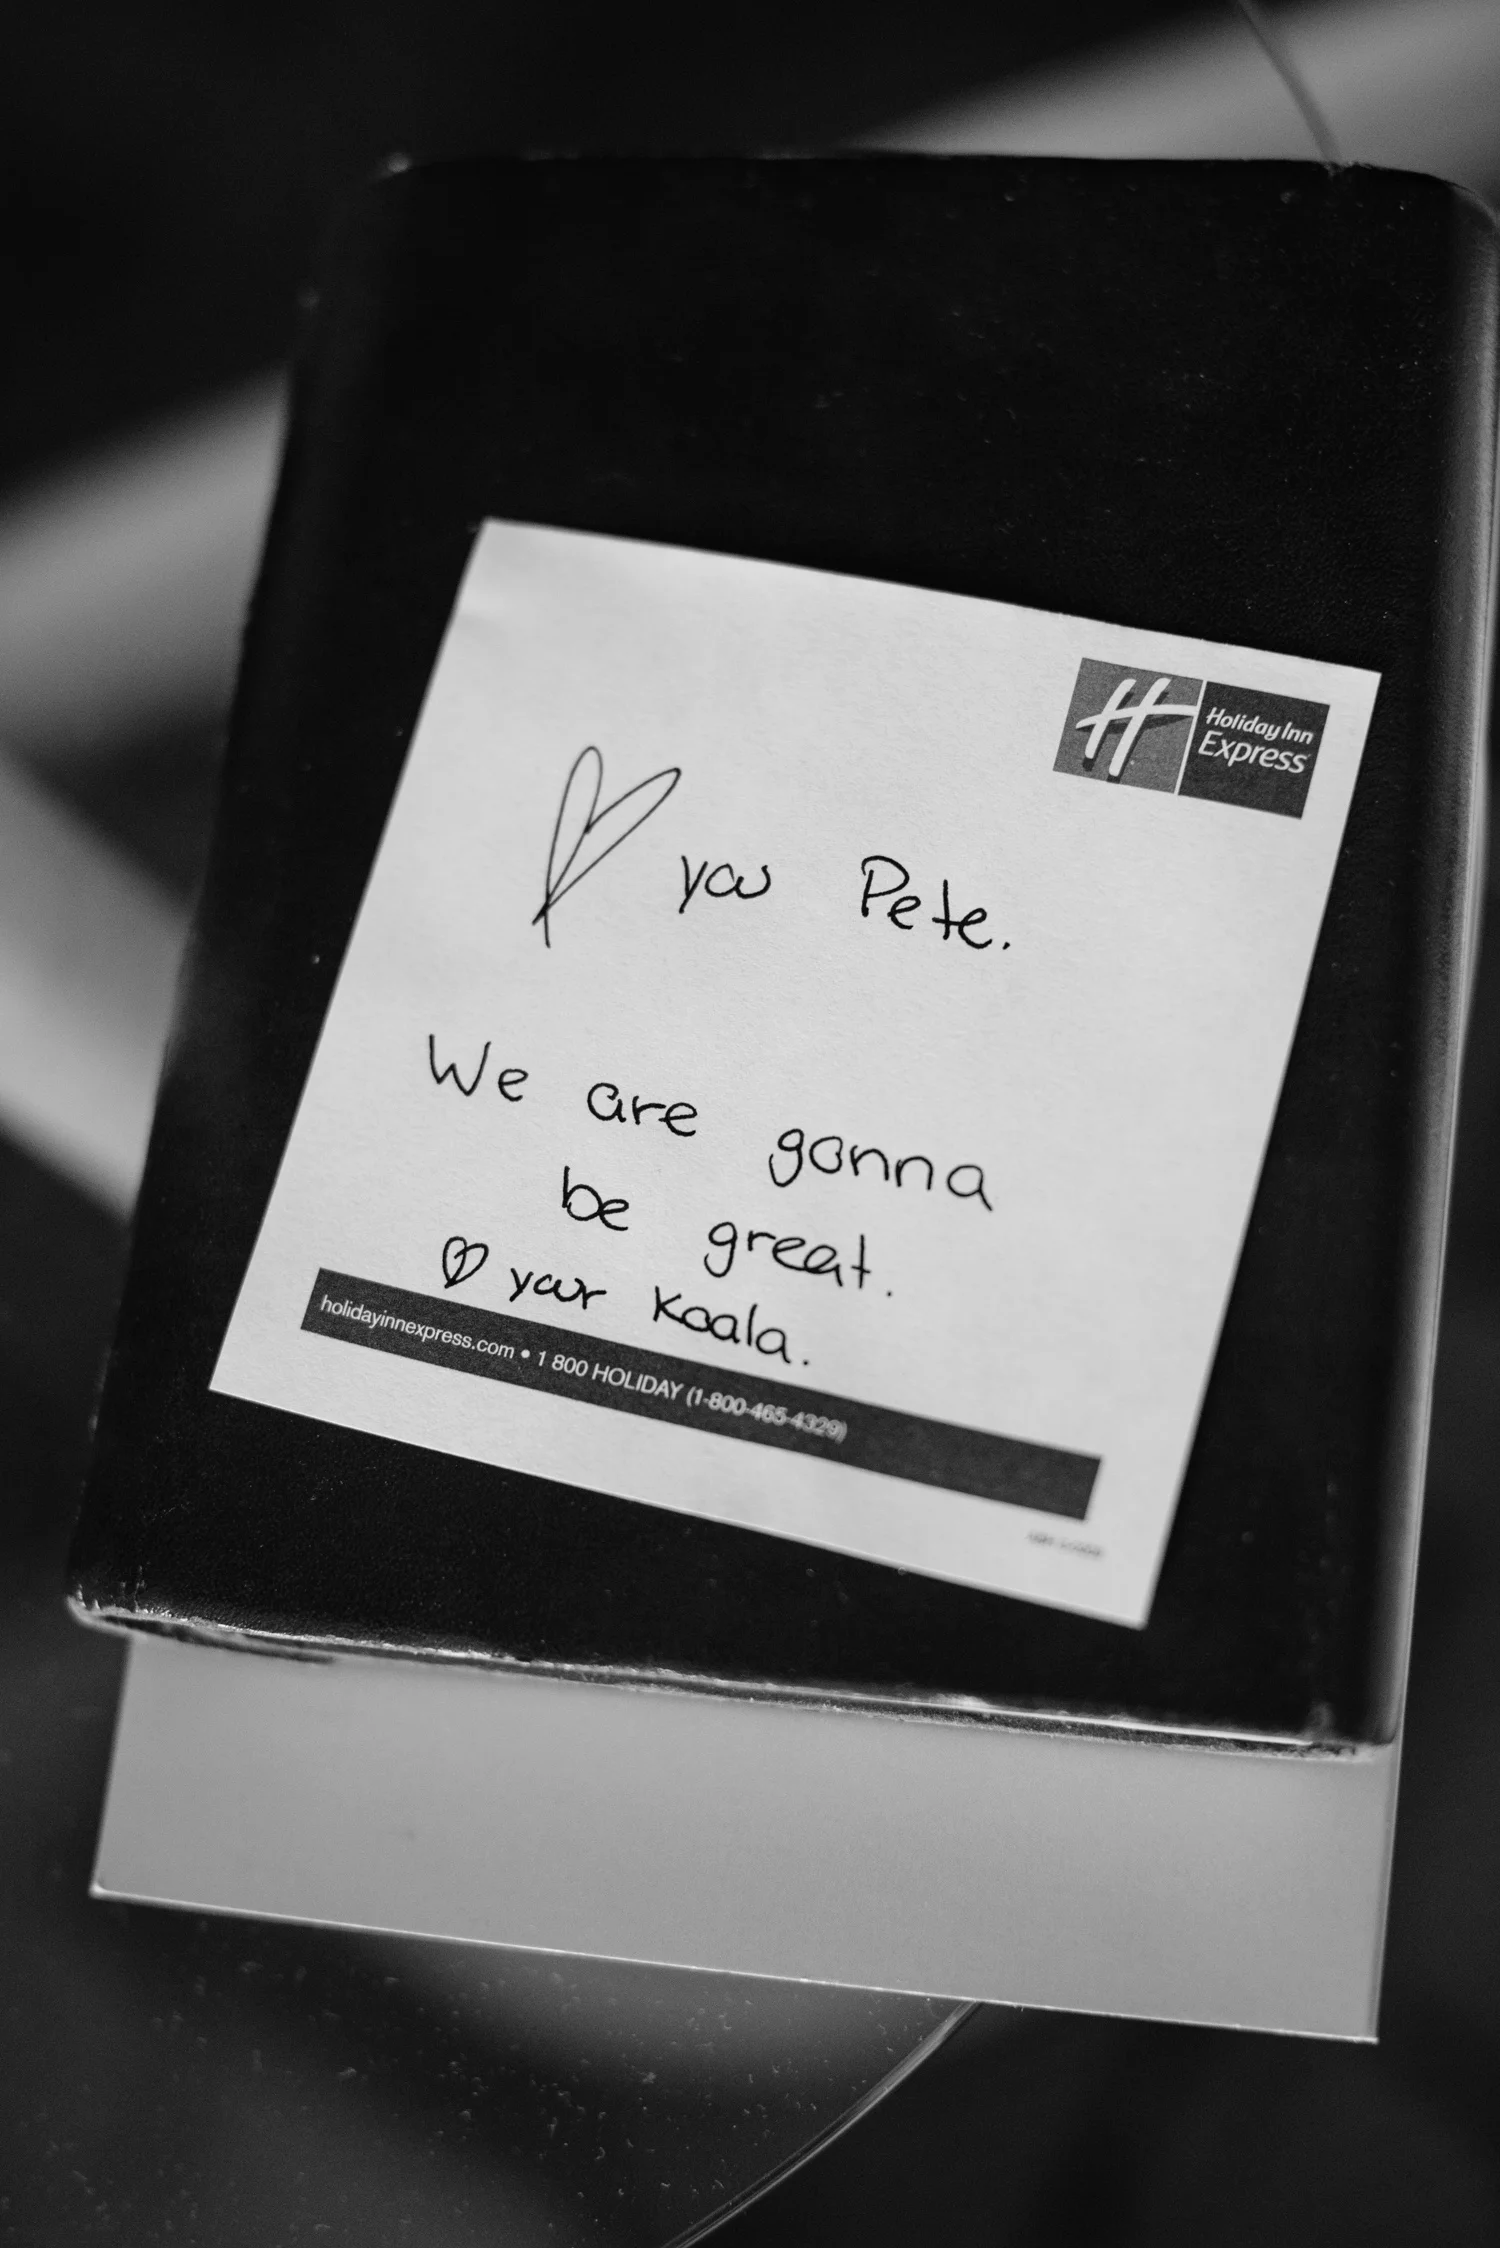 Holiday Inn
Express
you Pete.
We are gonna
be great.
your Koala.
holidayinnexpress.com • 1 800 HOLIDAY (1-800-465-4329)